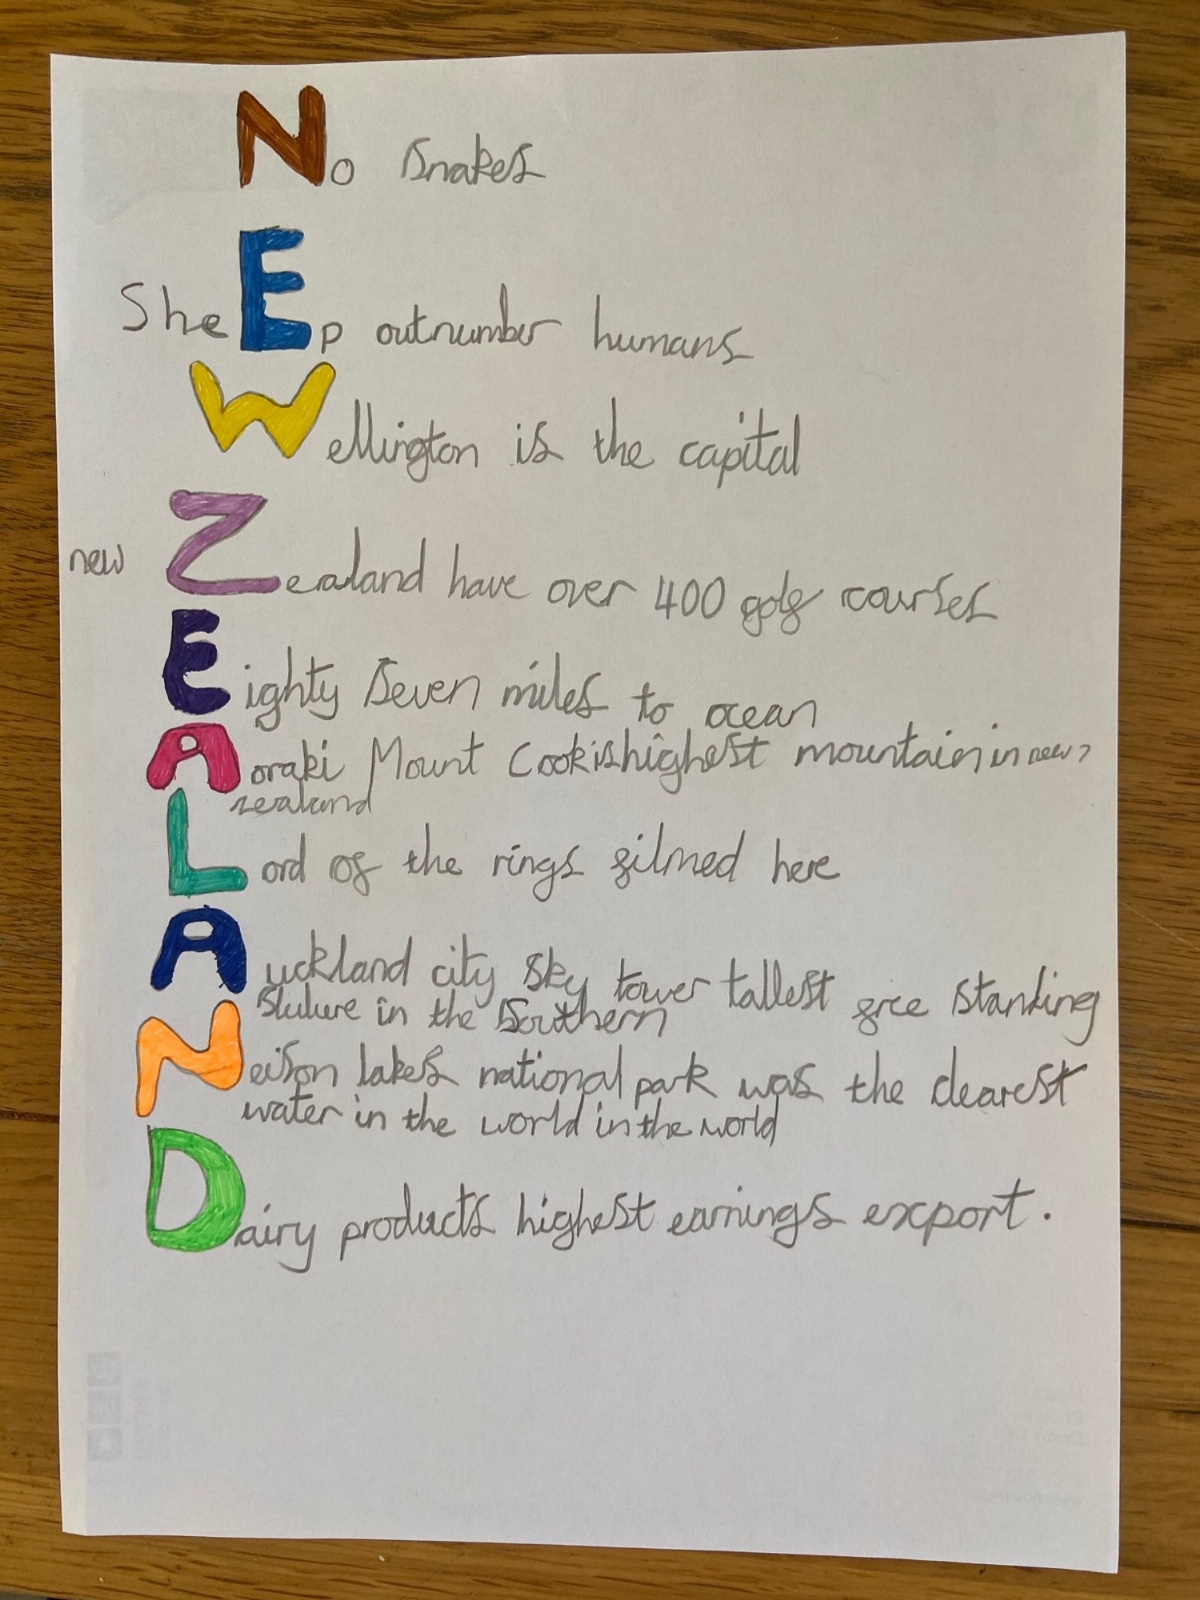 No snakes
SheEp outnumber humans
Wellington is the capital
new Zealand have over 400 golf courses
Eighty Seven miles to ocean
Aoraki Mount Cook is highest mountain in new
zealand
Lord of the rings filmed here
Auckland city Sky tower tallest free standing
in the Southern
lakes national park was the clearest
water in the world in the world
Dairy products highest earnings export.